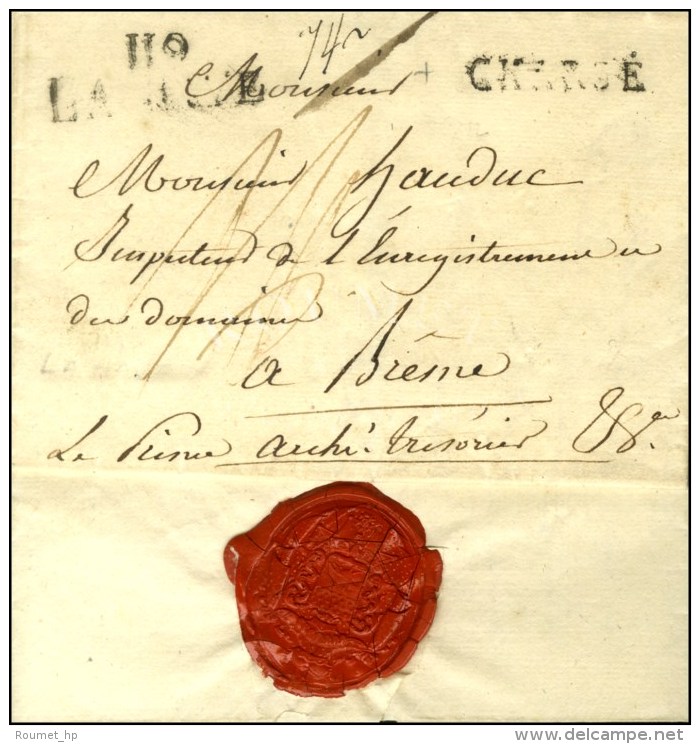 119
LA
CHARGÉ
Monsieur
Monsieur hauduc
Inspecteur de l'Enregistrement et
des domaines
a Brême
Le Prince archi. trésorier &a.
Roumet_hp
www.delcampe.net